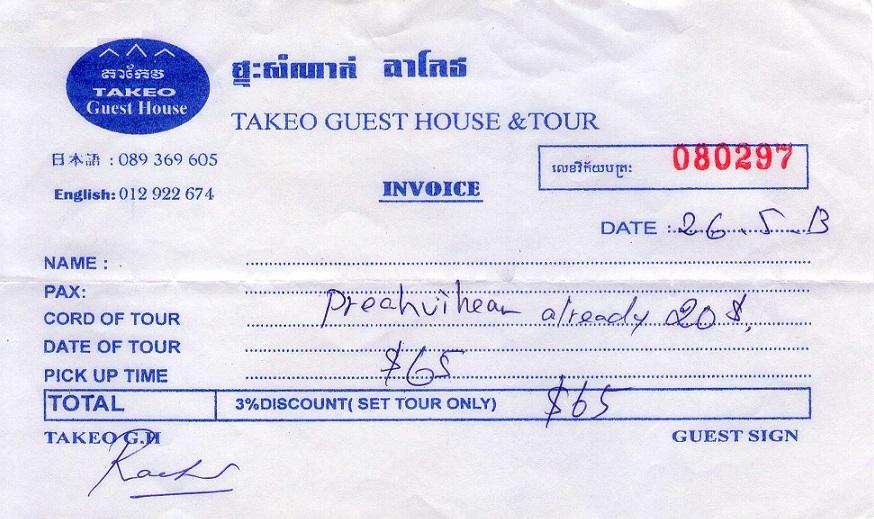 តាកែវ
TAKEO
Guest House
ផ្ទះសំណាក់ តាកែវ
TAKEO GUEST HOUSE & TOUR
日本語 : 089 369 605
English: 012 922 674
INVOICE
លេខវិក័យបត្រ: 080297
DATE : 26.5.13
NAME :
PAX:
CORD OF TOUR Preahvihear already 20$,
DATE OF TOUR
PICK UP TIME $65
TOTAL 3%DISCOUNT( SET TOUR ONLY) $65
TAKEO G.H GUEST SIGN